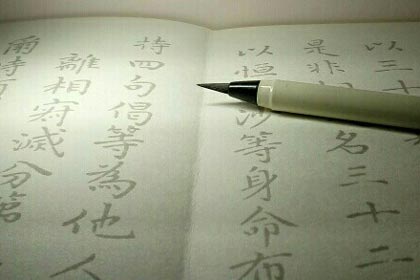 以三十
是非名三十二
以恒沙等身命布
持四句偈等為他人
離相寂滅分第
爾時